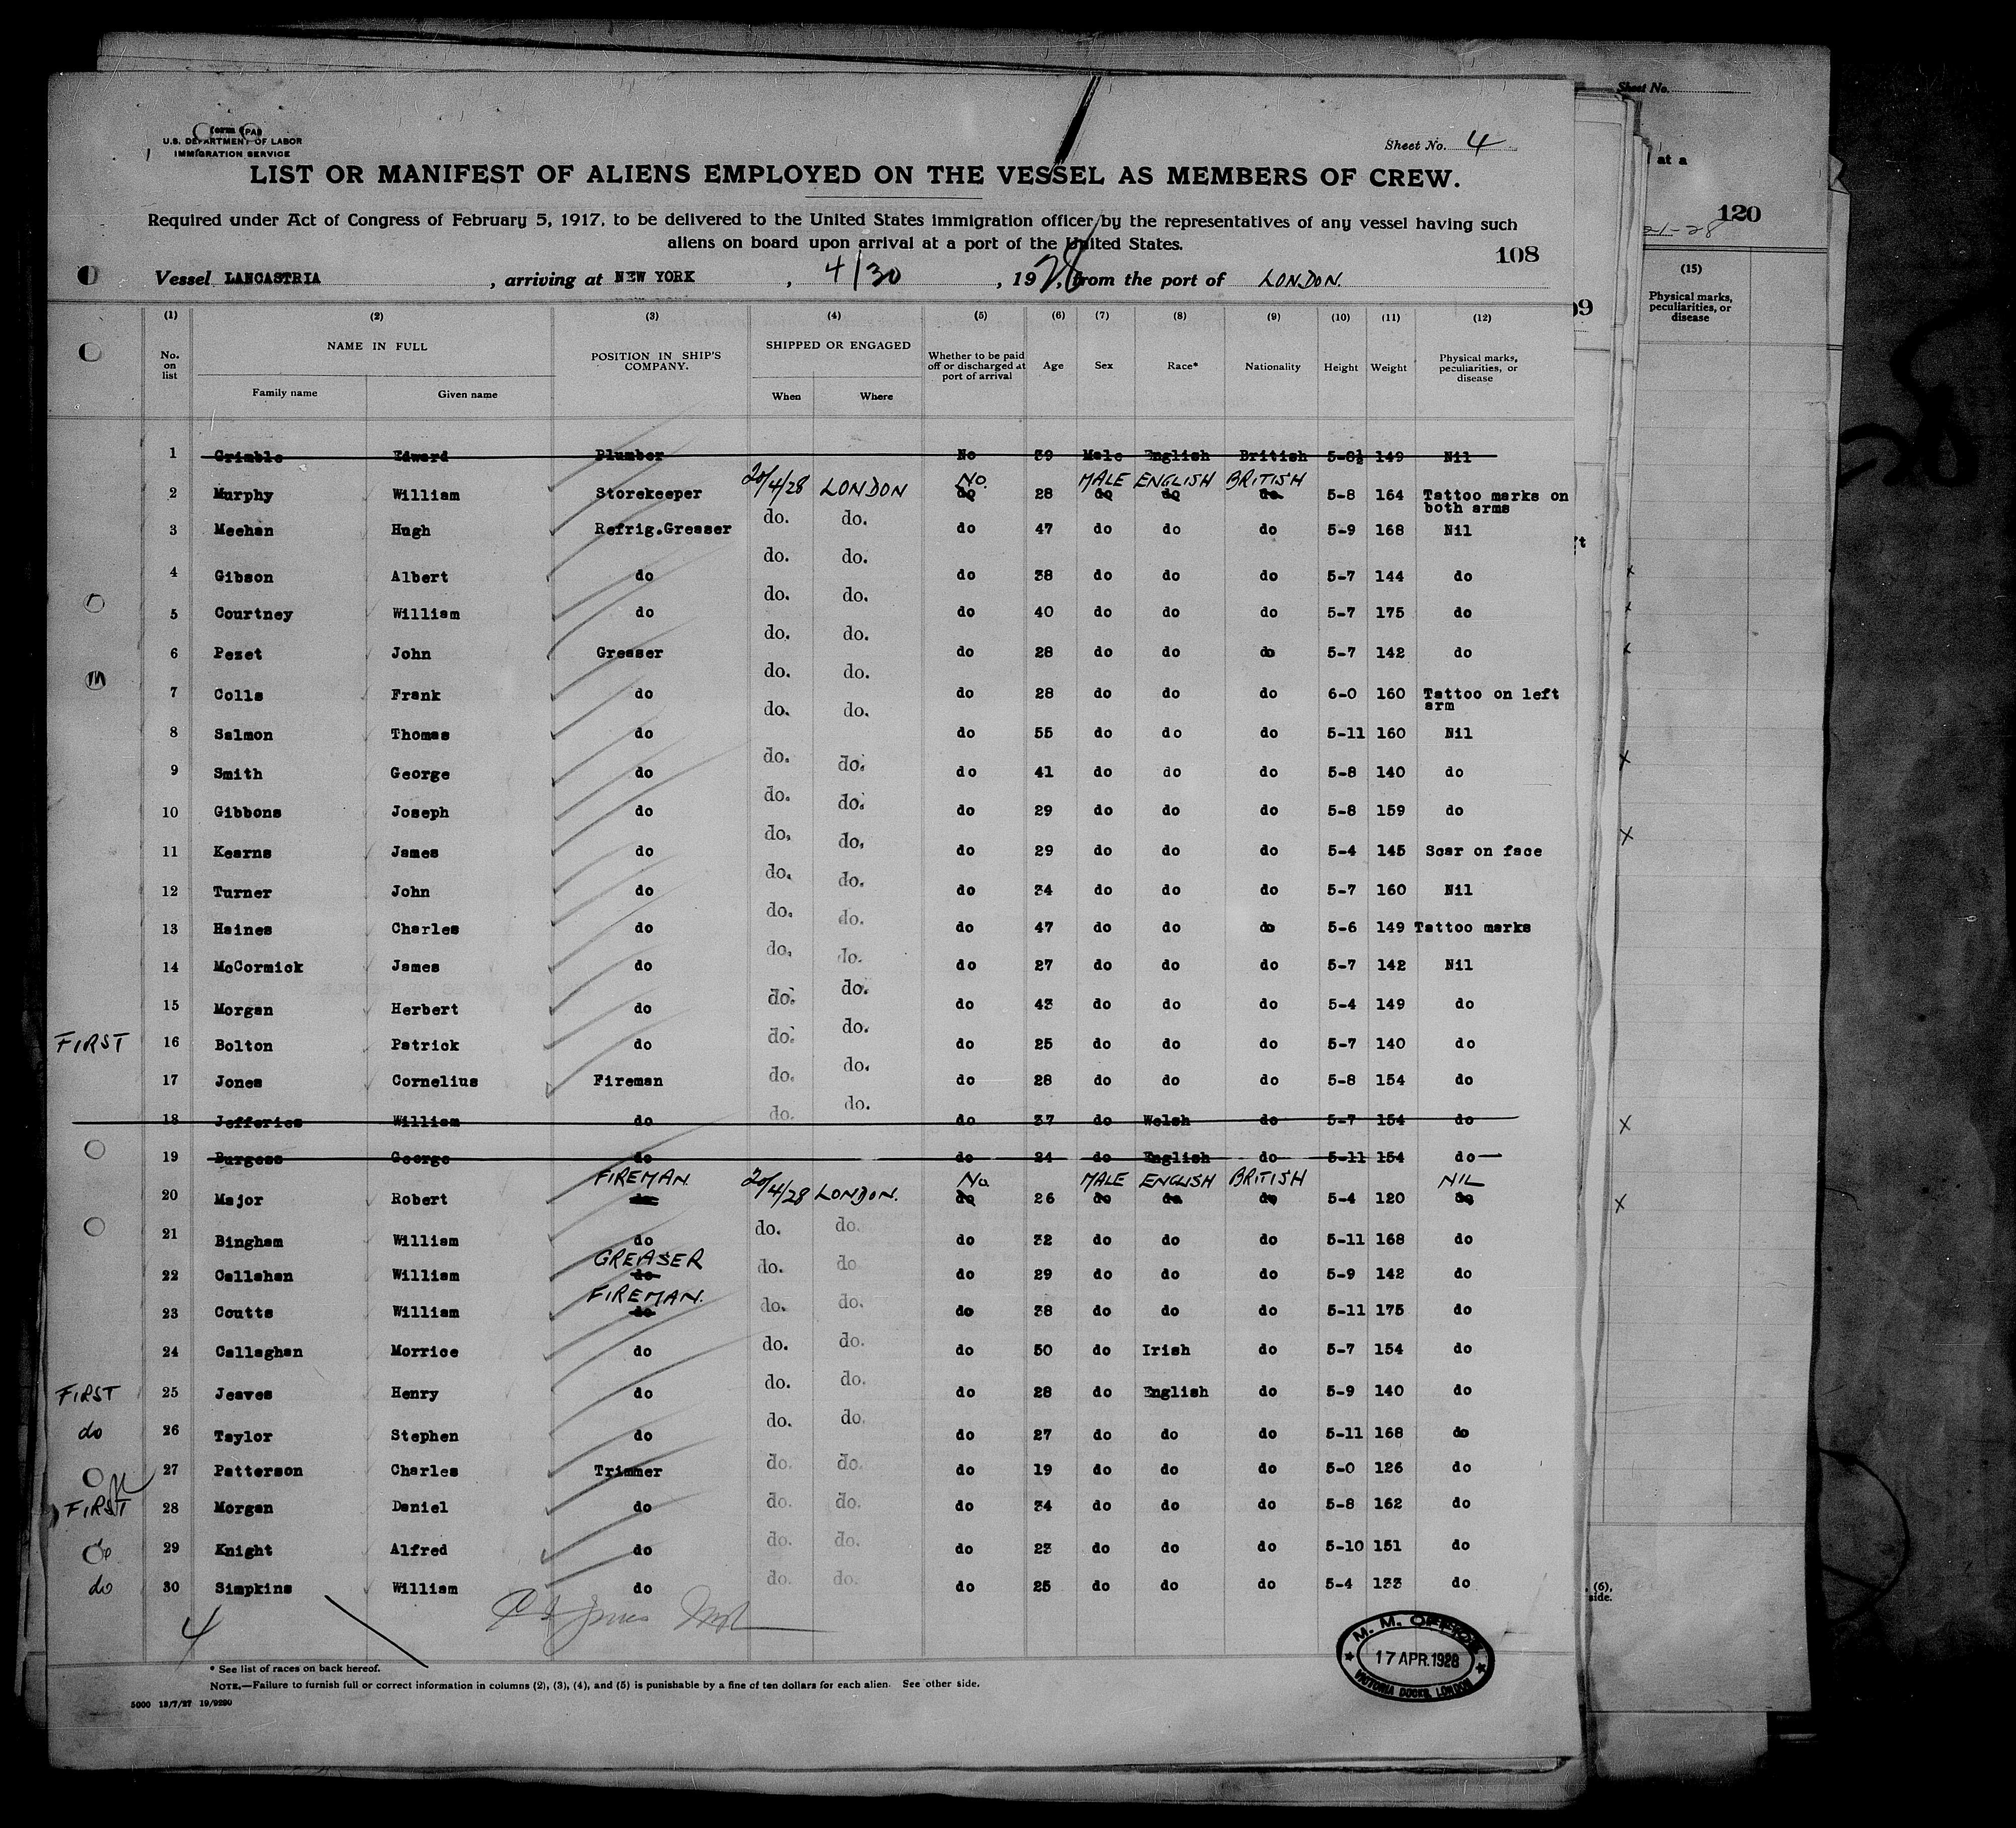 Form (PA)
U.S. DEPARTMENT OF LABOR
IMMIGRATION SERVICE
Sheet No. 4
LIST OR MANIFEST OF ALIENS EMPLOYED ON THE VESSEL AS MEMBERS OF CREW.
Required under Act of Congress of February 5, 1917, to be delivered to the United States immigration officer by the representatives of any vessel having such
aliens on board upon arrival at a port of the United States.
108
Vessel LANCASTRIA, arriving at NEW YORK, 4/30, 1928, from the port of LONDON.
(1) (2) (3) (4) (5) (6) (7) (8) (9) (10) (11) (12)
No. on list NAME IN FULL Family name Given name POSITION IN SHIP'S COMPANY. SHIPPED OR ENGAGED When Where Whether to be paid off or discharged at port of arrival Age Sex Race* Nationality Height Weight Physical marks, peculiarities, or disease
1 Grimble Edward Plumber No 39 Male English British 5-8½ 149 Nil
2 Murphy William Storekeeper 20/4/28 LONDON No. do 28 MALE do ENGLISH do BRITISH do 5-8 164 Tattoo marks on both arms
3 Meehan Hugh Refrig.Greaser do. do. do 47 do do do 5-9 168 Nil
4 Gibson Albert do do. do. do 38 do do do 5-7 144 do
5 Courtney William do do. do. do 40 do do do 5-7 175 do
6 Pezet John Greaser do. do. do 28 do do do 5-7 142 do
7 Colls Frank do do. do. do 28 do do do 6-0 160 Tattoo on left arm
8 Salmon Thomas do do. do. do 55 do do do 5-11 160 Nil
9 Smith George do do. do. do 41 do do do 5-8 140 do
10 Gibbons Joseph do do. do. do 29 do do do 5-8 159 do
11 Kearns James do do. do. do 29 do do do 5-4 145 Scar on face
12 Turner John do do. do. do 34 do do do 5-7 160 Nil
13 Haines Charles do do. do. do 47 do do do 5-6 149 Tattoo marks
14 McCormick James do do. do. do 27 do do do 5-7 142 Nil
15 Morgan Herbert do do. do. do 43 do do do 5-4 149 do
FIRST 16 Bolton Patrick do do. do. do 25 do do do 5-7 140 do
17 Jones Cornelius Fireman do. do. do 28 do do do 5-8 154 do
18 Jefferies William do do. do. do 37 do Welsh do 5-7 154 do
19 Burgess George do do 24 do English do 5-11 154 do
20 Major Robert FIREMAN do 20/4/28 LONDON. No. do 26 MALE do ENGLISH do BRITISH do 5-4 120 NIL do
21 Bingham William do do. do. do 32 do do do 5-11 168 do
22 Callahan William GREASER do do. do do 29 do do do 5-9 142 do
23 Coutts William FIREMAN. do do. do. do 38 do do do 5-11 175 do
24 Callaghan Morrice do do. do. do 50 do Irish do 5-7 154 do
FIRST 25 Jeaves Henry do do. do. do 28 do English do 5-9 140 do
do 26 Taylor Stephen do do. do. do 27 do do do 5-11 168 do
27 Patterson Charles Trimmer do. do. do 19 do do do 5-0 126 do
FIRST 28 Morgan Daniel do do. do. do 34 do do do 5-8 162 do
do 29 Knight Alfred do do. do. do 23 do do do 5-10 151 do
do 30 Simpkins William do do. do. do 25 do do do 5-4 133 do
4
M. M. OFFICE
17 APR. 1928
VICTORIA DOCKS, LONDON
* See list of races on back hereof.
NOTE.—Failure to furnish full or correct information in columns (2), (3), (4), and (5) is punishable by a fine of ten dollars for each alien. See other side.
5000 13/7/27 19/9290
Sheet No.
at a
120
21-28
(15)
Physical marks,
peculiarities, or
disease
09
(6),
side.